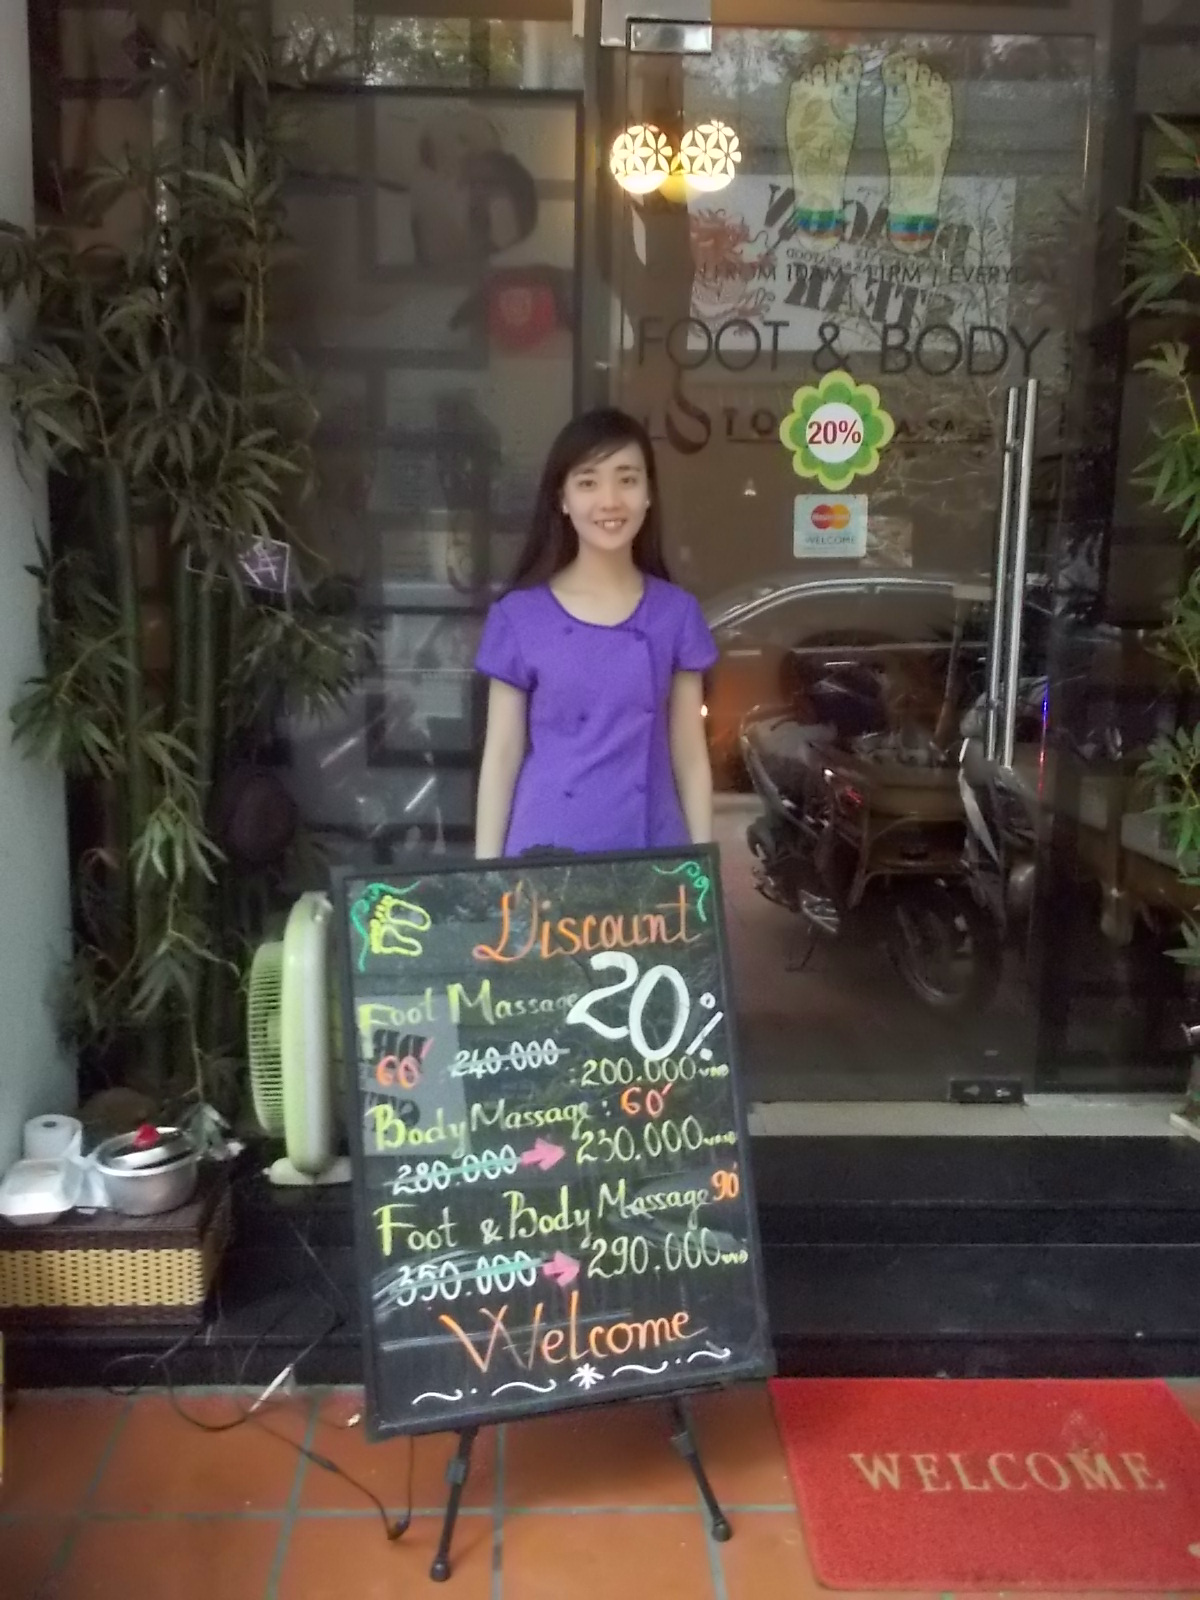 10AM - 11PM | EVERYDAY
FOOT & BODY
20%
WELCOME
Discount
20%
Foot Massage
60' 240.000 : 200.000 VND
Body Massage : 60'
280.000 → 230.000 VND
Foot & Body Massage 90'
350.000 → 290.000 VND
Welcome
WELCOME